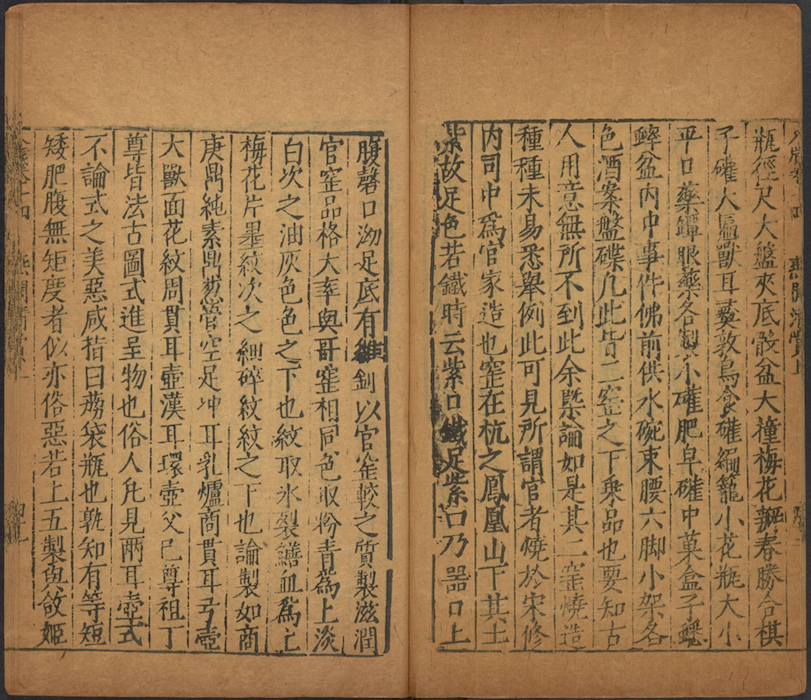 瓶徑尺大盤夾底骰盆大撞梅花瓣春勝合棋
子確大匾獸耳彝敦鳥食確編籠小花瓶大小
平口藥鐔眼藥各製小確肥皁確中菓盒子蟋
蟀盆内中事件佛前供水碗束腰六脚小架各
色酒案盤碟凢此皆二窑之下乗品也要知古
人用意無所不到此余槩論如是其二窑燒造
種種未易悉舉例此可見所謂官者燒於宋修
内司中爲官家造也窑在杭之鳳凰山下其土
紫故足色若鐵時云紫口鐵足紫口乃器口上
腹磬口泑足底有釗以官窑較之質製滋潤
官窑品格大率與哥窑相同色取粉青爲上淡
白次之油灰色色之下也紋取氷裂鱔血爲上
梅花片墨紋次之細碎紋紋之下也論製如商
庚鼎純素鼎葱管空足冲耳乳爐商貫耳弓壺
大獸面花紋周貫耳壺漢耳環壺父己尊祖丁
尊皆法古圖式進呈物也俗人凢見兩耳壺式
不論式之美惡咸指曰茄袋瓶也孰知有等短
矮肥腹無矩度者似亦俗惡若上五製與敛姬